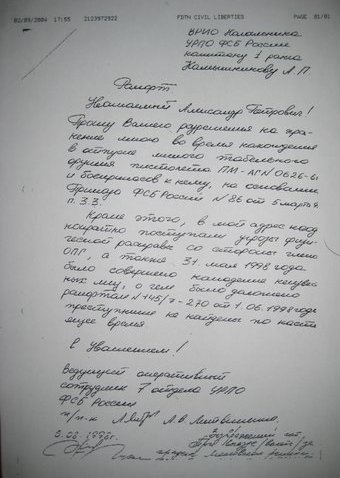 02/09/2004 17:55 2123972922 FDTH CIVIL LIBERTIES PAGE 01/01
ВРИО Начальника
УРПО ФСБ России
капитану 1 ранга
Камышникову А.П.
Рапорт
Уважаемый Александр Петрович!
Прошу Вашего разрешения на хра-
нение мною во время нахождения
в отпуске личного табельного
оружия пистолета ПМ-АГN0626-61
и боеприпасов к нему, на основании
Приказа ФСБ России N 86 от 5 марта
п. 3.3.
Кроме этого, в мой адрес неод
нократно поступали угрозы физи-
ческой расправы со стороны члено
ОПГ, а также 31 мая 1998 года
было совершено нападение неизвес
ных лиц, о чем было доложено
рапортом N 145/7-270 от 1.06.1998 года
преступники не найдены по наст
ящее время
С Уважением!
Ведущий оперативный
сотрудник 7 отдела УРПО
ФСБ России
п/п-к А.В. Литвиненко